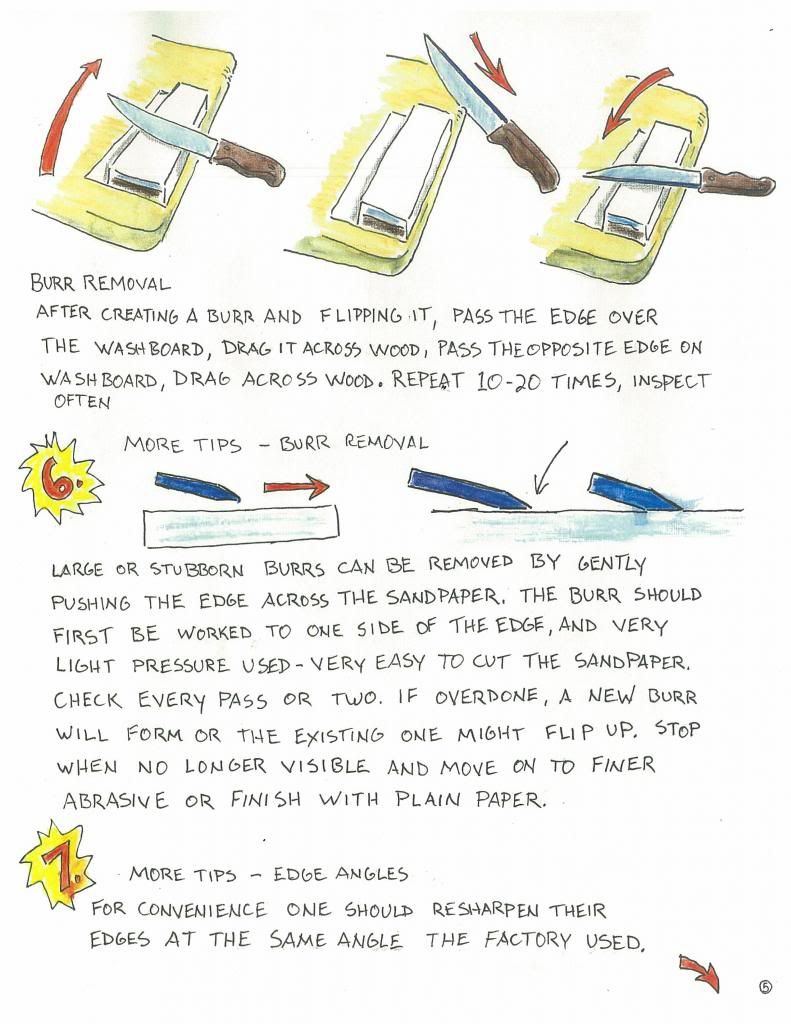 BURR REMOVAL
AFTER CREATING A BURR AND FLIPPING IT, PASS THE EDGE OVER
THE WASHBOARD, DRAG IT ACROSS WOOD, PASS THE OPPOSITE EDGE ON
WASHBOARD, DRAG ACROSS WOOD. REPEAT 10-20 TIMES, INSPECT
OFTEN
6.
MORE TIPS - BURR REMOVAL
LARGE OR STUBBORN BURRS CAN BE REMOVED BY GENTLY
PUSHING THE EDGE ACROSS THE SANDPAPER. THE BURR SHOULD
FIRST BE WORKED TO ONE SIDE OF THE EDGE, AND VERY
LIGHT PRESSURE USED - VERY EASY TO CUT THE SANDPAPER.
CHECK EVERY PASS OR TWO. IF OVERDONE, A NEW BURR
WILL FORM OR THE EXISTING ONE MIGHT FLIP UP. STOP
WHEN NO LONGER VISIBLE AND MOVE ON TO FINER
ABRASIVE OR FINISH WITH PLAIN PAPER.
7.
MORE TIPS - EDGE ANGLES
FOR CONVENIENCE ONE SHOULD RESHARPEN THEIR
EDGES AT THE SAME ANGLE THE FACTORY USED.
5